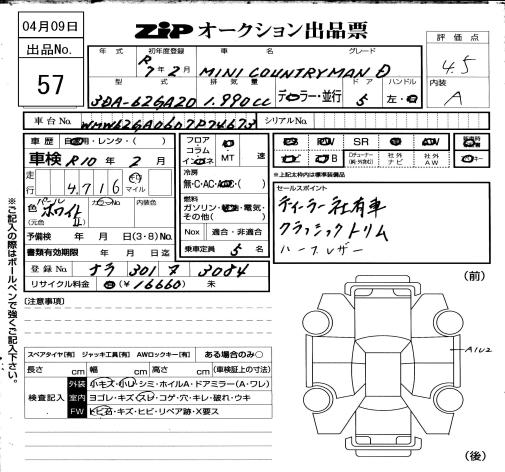 04月09日
ZIP オークション出品票
出品No.
57
評価点
4.5
内装
A
年式 初年度登録 車名 グレード
R7年2月 MINI COUNTRYMAN D
型式 排気量 ドア ハンドル
3DA-62GA20 1.990cc ディーラー・並行 5 左・
車台No. WMW62GA0607P74673 シリアルNo.
車歴 自家用・レンタ・( )
車検 R10年2月
走行 4,716 km マイル
色 パールホワイトII カラーNo. 内装色
(元色 )
予備検 年 月 日(3・8)No.
書類有効期限 年 月 日迄
登録No. ナラ 301 ヌ 3084
リサイクル料金 (¥16660) 未
フロア コラム インパネ AT・MT 速
冷房 無・C・AC・( )
燃料 ガソリン・ ・電気・その他( )
Nox 適合・非適合
乗車定員 5名
PW SR AW
ナビ B 社外ナビ 社外AW キー
※上記太枠内は標準装備品
セールスポイント
ディーラー社有車
クラシックトリム
ハーフレザー
(注意事項)
スペアタイヤ[有] ジャッキ工具[有] AWロックキー[有] ある場合のみ○
長さ cm 幅 cm 高さ cm (車検証上の寸法)
検査記入
外装 小キズ・小凹・シミ・ホイルA・ドアミラー(A・ワレ)
室内 ヨゴレ・キズ・スレ・コゲ・穴・キレ・破れ・ウキ
FW トビ石・キズ・ヒビ・リペア跡・X要ス
(前)
A1U2
(後)
※ご記入の際はボールペンで強くご記入下さい。